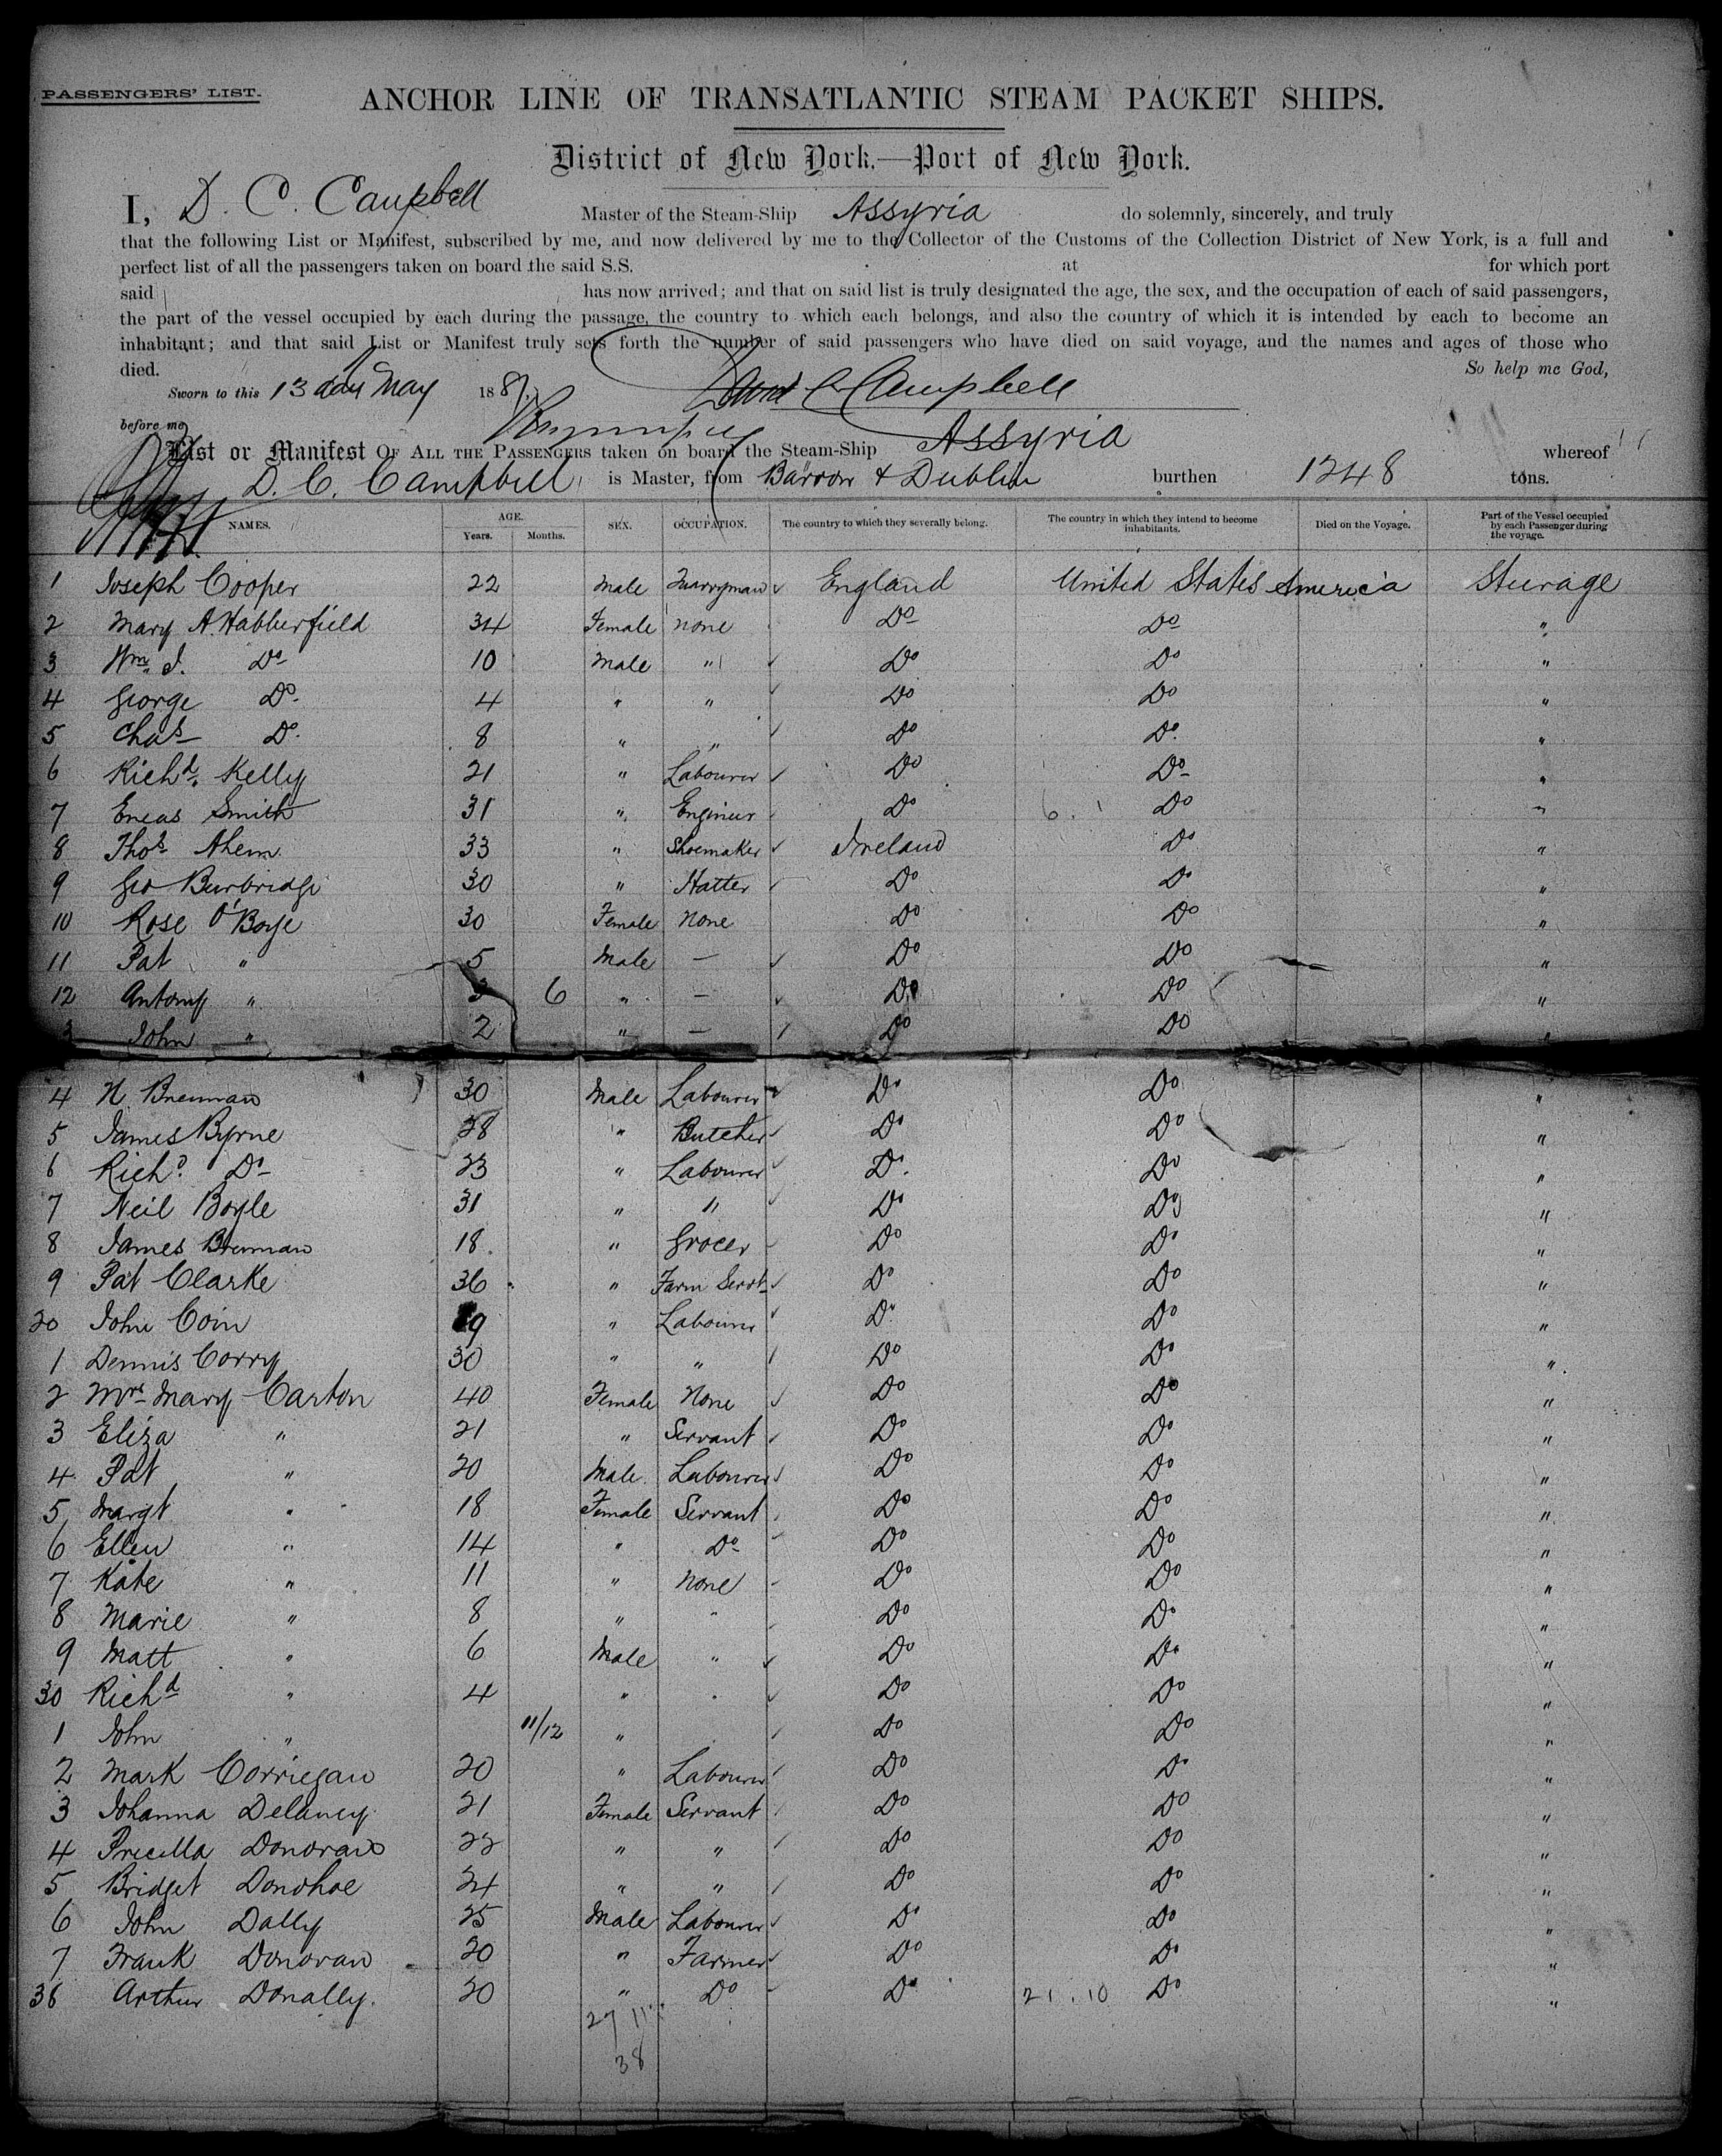 PASSENGERS' LIST.
ANCHOR LINE OF TRANSATLANTIC STEAM PACKET SHIPS.
District of New York.—Port of New York.
I, D. C. Campbell Master of the Steam-Ship Assyria do solemnly, sincerely, and truly
that the following List or Manifest, subscribed by me, and now delivered by me to the Collector of the Customs of the Collection District of New York, is a full and
perfect list of all the passengers taken on board the said S.S. at for which port
said has now arrived; and that on said list is truly designated the age, the sex, and the occupation of each of said passengers,
the part of the vessel occupied by each during the passage, the country to which each belongs, and also the country of which it is intended by each to become an
inhabitant; and that said List or Manifest truly sets forth the number of said passengers who have died on said voyage, and the names and ages of those who
died. So help me God,
Sworn to this 13 day May 188 David C Campbell
before me
List or Manifest OF ALL THE PASSENGERS taken on board the Steam-Ship Assyria whereof
D. C. Campbell is Master, from Barrow & Dublin burthen 1248 tons.
NAMES. AGE. Years. Months. SEX. OCCUPATION. The country to which they severally belong. The country in which they intend to become inhabitants. Died on the Voyage. Part of the Vessel occupied by each Passenger during the voyage.
1 Joseph Cooper 22 Male Quarryman England United States America Steerage
2 Mary A. Habberfield 34 Female none Do Do "
3 Wm J. Do 10 Male " Do Do "
4 George Do 4 " " Do Do "
5 Chas Do 8 " " Do Do "
6 Richd Kelly 21 " Labourer Do Do "
7 Eneas Smith 31 " Engineer Do 6. 1 Do "
8 Thos Ahern 33 " Shoemaker Ireland Do "
9 Geo Burbridge 30 " Hatter Do Do "
10 Rose O'Boye 30 Female none Do Do "
11 Pat " 5 Male — Do Do "
12 Antony " 3 6 " — Do Do "
3 John " 2 " — Do Do "
4 N Brennan 30 Male Labourer Do Do "
5 James Byrne 28 " Butcher Do Do "
6 Richd Do 23 " Labourer Do Do "
7 Neil Boyle 31 " " Do Do "
8 James Brennan 18 " Grocer Do Do "
9 Pat Clarke 36 " Farm Servt Do Do "
20 John Coin 9 " Labourer Do Do "
1 Dennis Corry 30 " " Do Do "
2 Mrs Mary Carton 40 Female None Do Do "
3 Eliza " 21 " Servant Do Do "
4 Pat " 20 Male Labourer Do Do "
5 Margt " 18 Female Servant Do Do "
6 Ellen " 14 " Do Do Do "
7 Kate " 11 " none Do Do "
8 Marie " 8 " " Do Do "
9 Matt " 6 Male " Do Do "
30 Richd " 4 " " Do Do "
1 John " 11/12 " Do Do "
2 Mark Corriegan 20 " Labourer Do Do "
3 Johanna Delaney 21 Female Servant Do Do "
4 Precilla Donovan 22 " " Do Do "
5 Bridget Donohoe 24 " " Do Do "
6 John Dally 25 Male Labourer Do Do "
7 Frank Donovan 20 " Farmer Do Do "
38 Arthur Donally. 20 " Do Do 21. 10 Do "
27 11
38